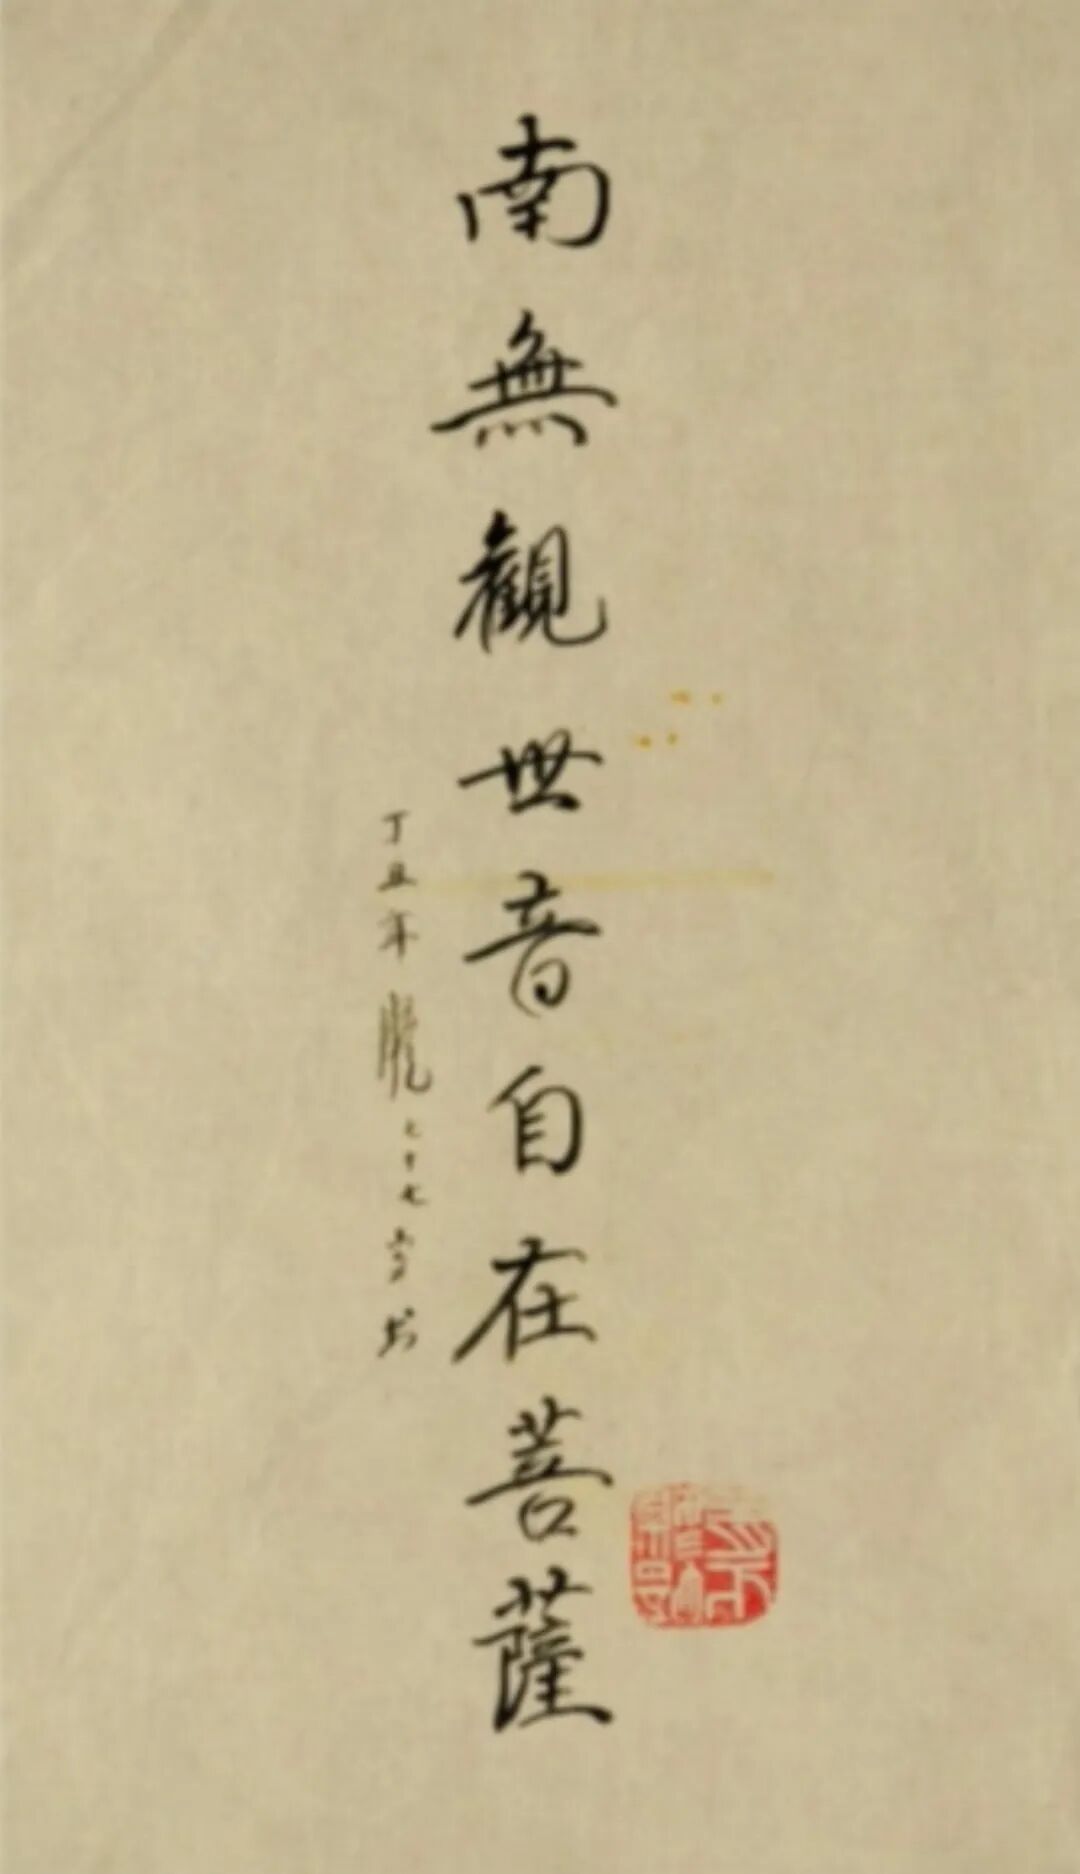 南無觀世音自在菩薩
丁丑年 七十七 书